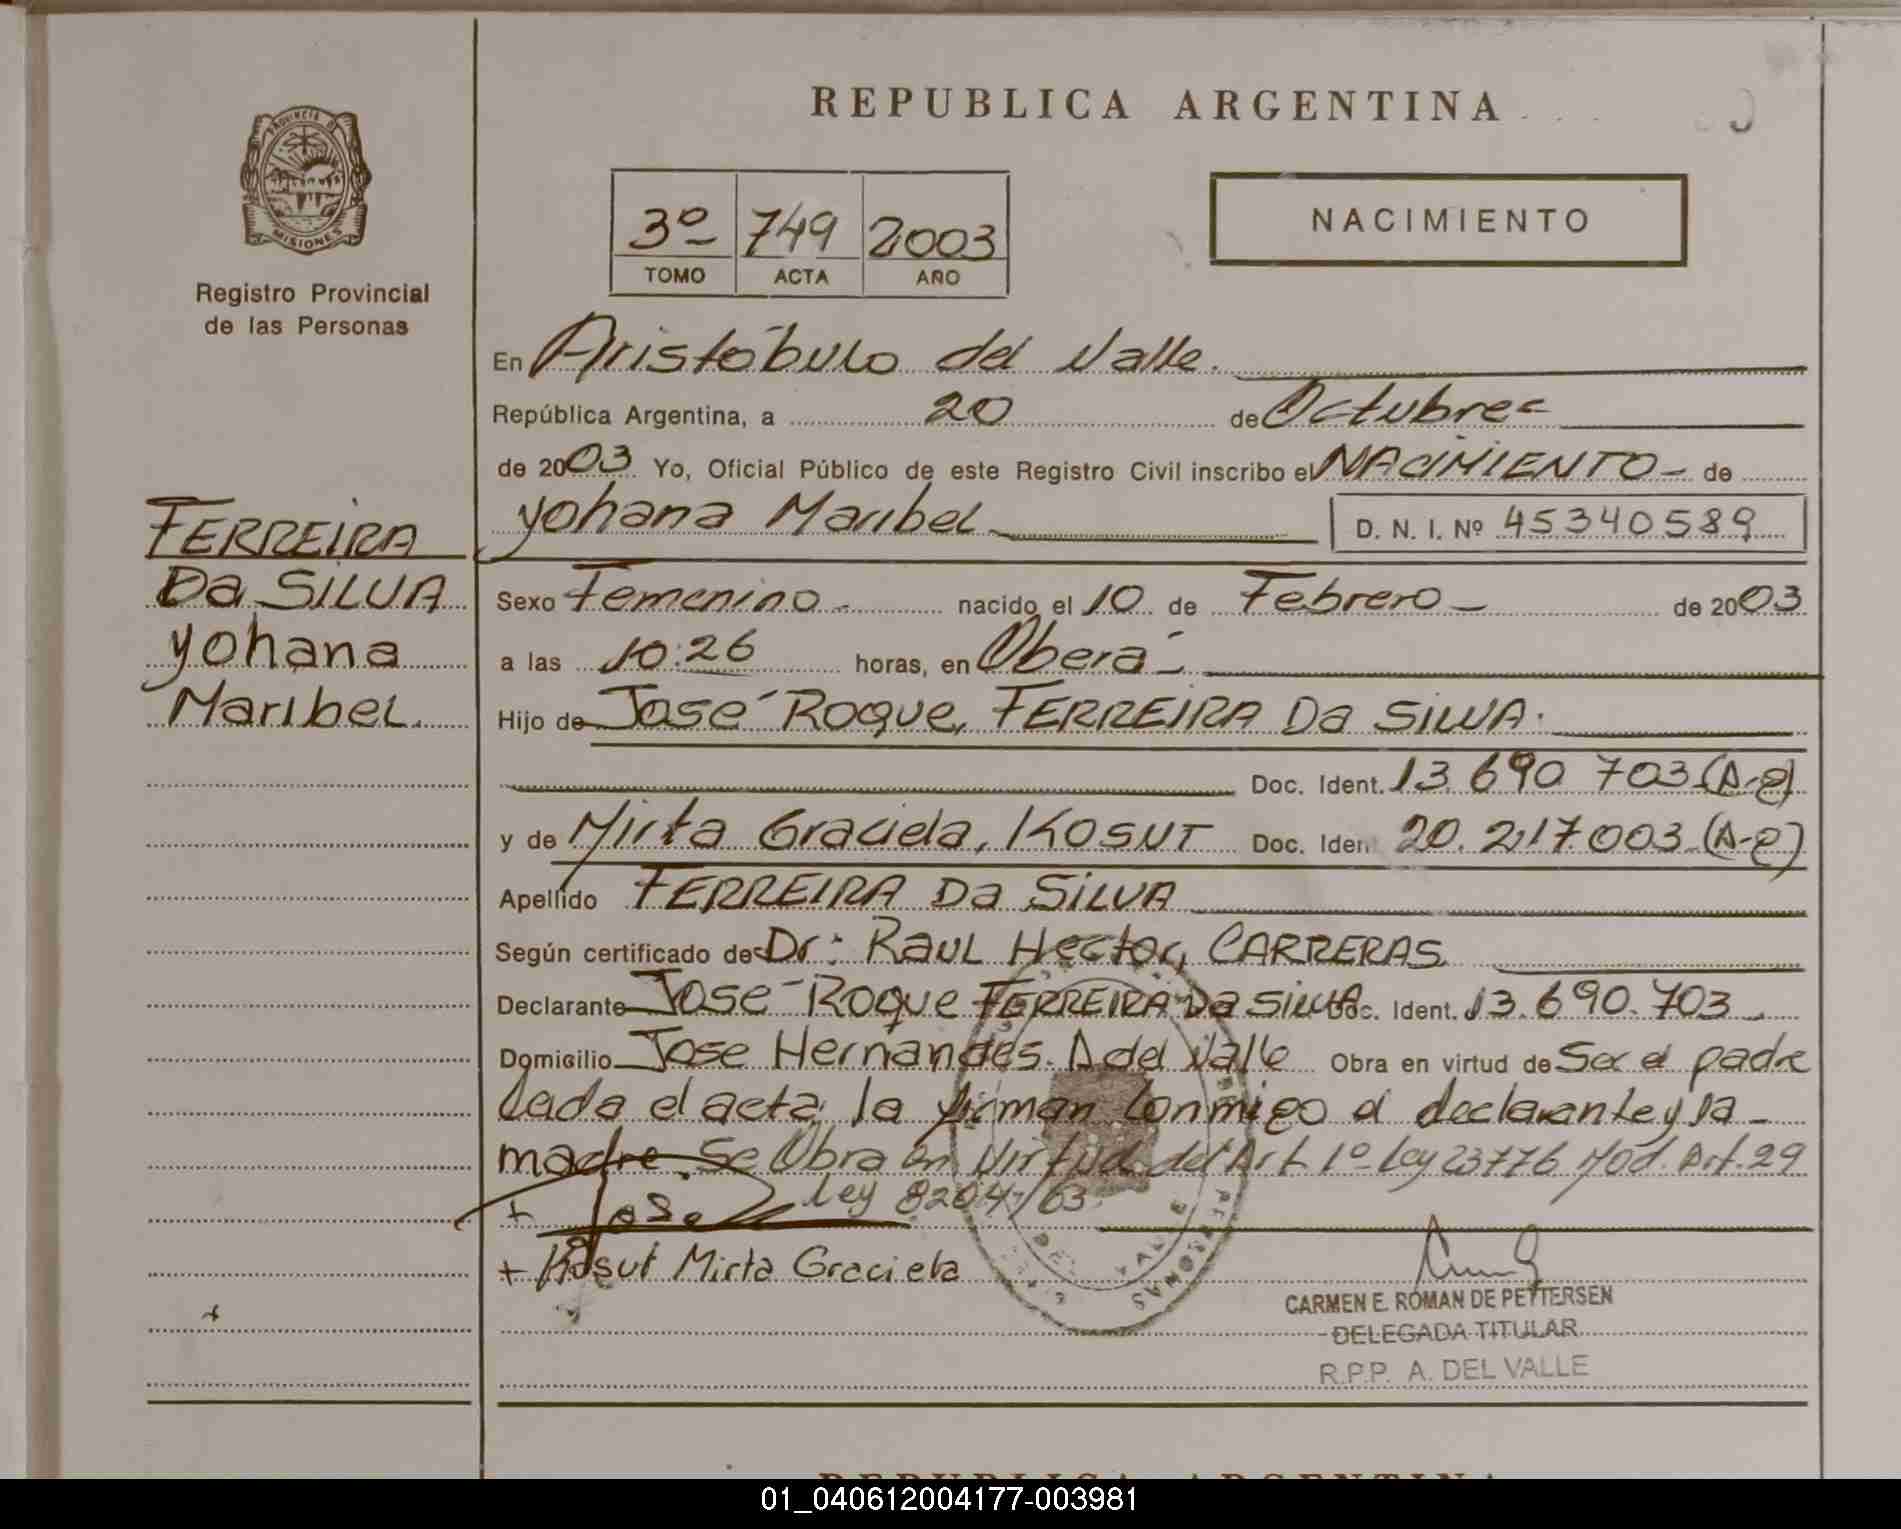 REPUBLICA ARGENTINA
PROVINCIA DE
MISIONES
Registro Provincial
de las Personas
3º 749 2003
TOMO ACTA AÑO
NACIMIENTO
En Aristóbulo del Valle.
República Argentina, a 20 de Octubre
de 2003 Yo, Oficial Público de este Registro Civil inscribo el NACIMIENTO - de
Yohana Maribel D. N. I. Nº 45340589
FERREIRA
Da SILVA
Yohana
Maribel.
Sexo Femenino - nacido el 10 de Febrero - de 2003
a las 10:26 horas, en Oberá -
Hijo de José Roque, FERREIRA Da SILVA.
Doc. Ident. 13.690.703 (A-e)
y de Mirta Graciela, KOSUT Doc. Iden 20.217.003 (A-e)
Apellido FERREIRA Da SILVA
Según certificado de Dr: RAUL Hector, CARRERAS
Declarante José Roque FERREIRA Da SILVA Doc. Ident. 13.690.703
Domicilio Jose Hernandes. A del Valle Obra en virtud de Ser el padre
Leida el acta, la firman conmigo el declarante y la -
madre. Se Obra en Virtud del Art 1º Ley 23776 Mod. Art. 29
+ Jose Ley 8204/63.
+ Kosut Mirta Graciela
DEL VALLE
PERSONAS
CARMEN E. ROMAN DE PETTERSEN
DELEGADA TITULAR
R.P.P. A. DEL VALLE
REPUBLICA ARGENTINA
01_040612004177-003981